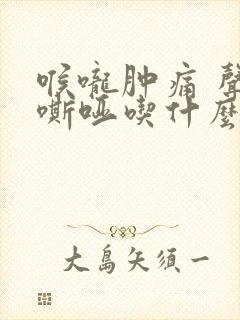 喉嚨肿痛 聲
嘶哑喫什麼
大島矢須一